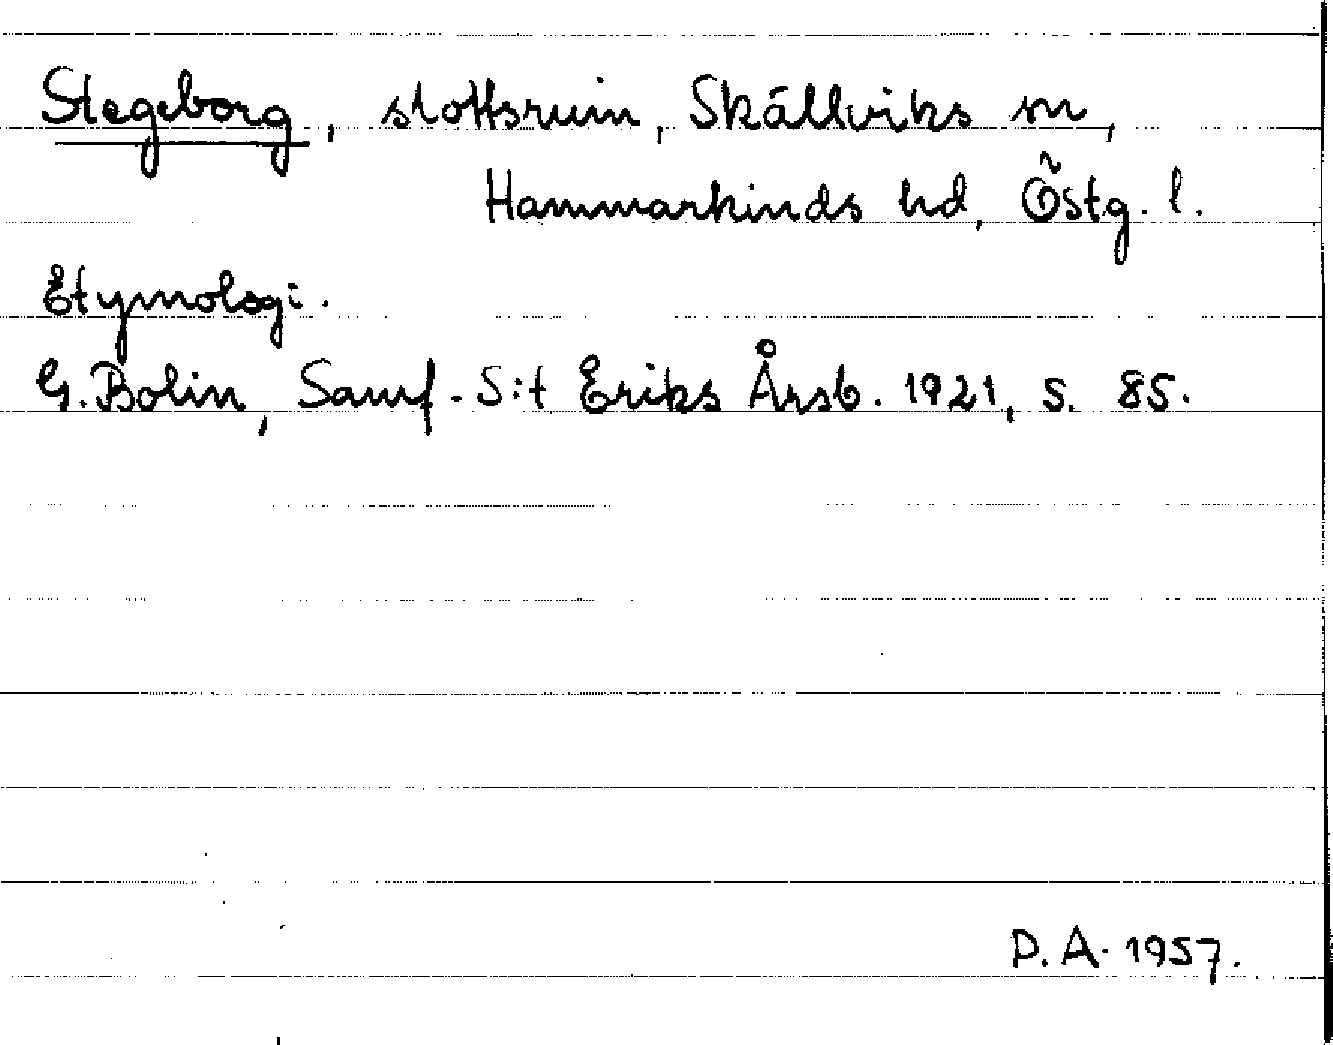 Stegeborg, slottsruin, Skällviks sn,
Hammarkinds hd, Östg. l.
Etymologi.
G. Bolin, Samf. S:t Eriks Årsb. 1921, s. 85.
D. A. 1957.